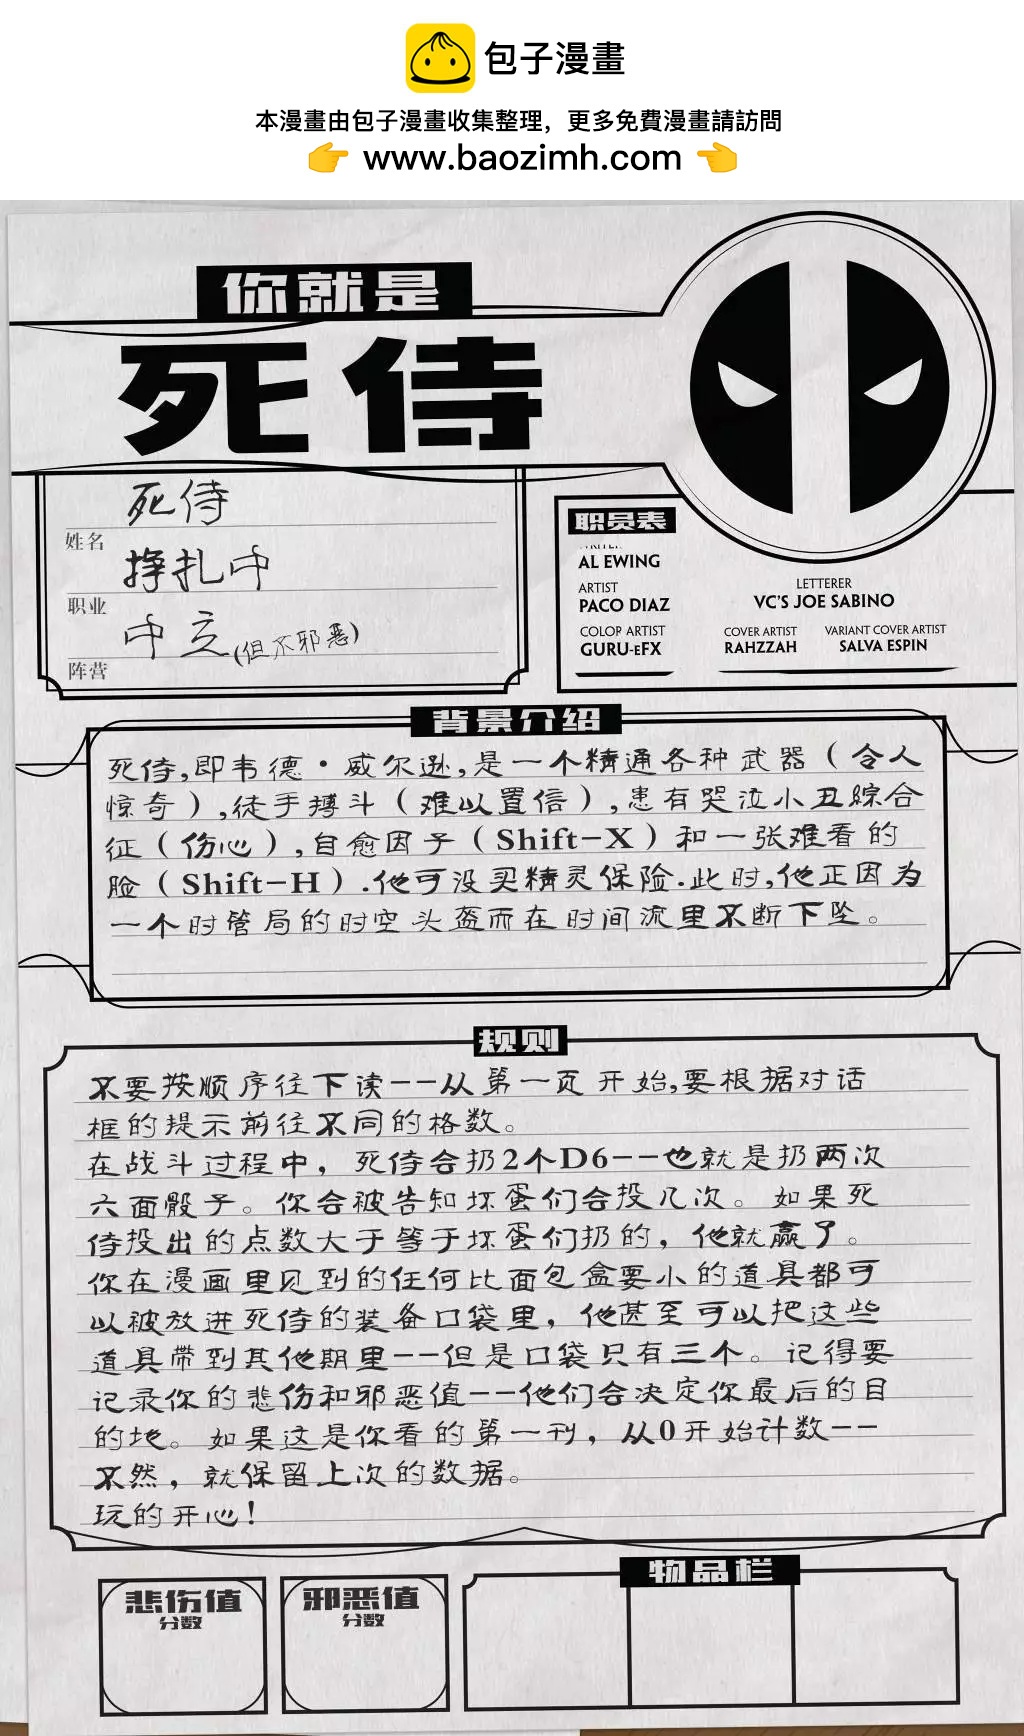 包子漫畫
本漫畫由包子漫畫收集整理，更多免費漫畫請訪問
👉 www.baozimh.com 👈
你就是
死侍
死侍
姓名
挣扎中
职业
中立(但不邪恶)
阵营
职员表
WRITER
AL EWING
ARTIST
PACO DIAZ
COLOP ARTIST
GURU-eFX
LETTERER
VC'S JOE SABINO
COVER ARTIST
RAHZZAH
VARIANT COVER ARTIST
SALVA ESPIN
背景介绍
死侍,即韦德·威尔逊,是一个精通各种武器（令人
惊奇）,徒手搏斗（难以置信）,患有哭泣小丑综合
征（伤心）,自愈因子（Shift-X）和一张难看的
脸（Shift-H）.他可没买精灵保险.此时,他正因为
一个时管局的时空头盔而在时间流里不断下坠。
规则
不要按顺序往下读--从第一页开始,要根据对话
框的提示前往不同的格数。
在战斗过程中，死侍会扔2个D6--也就是扔两次
六面骰子。你会被告知坏蛋们会投几次。如果死
侍投出的点数大于等于坏蛋们扔的，他就赢了。
你在漫画里见到的任何比面包盒要小的道具都可
以被放进死侍的装备口袋里，他甚至可以把这些
道具带到其他期里--但是口袋只有三个。记得要
记录你的悲伤和邪恶值--他们会决定你最后的目
的地。如果这是你看的第一刊，从0开始计数--
不然，就保留上次的数据。
玩的开心!
悲伤值
分数
邪恶值
分数
物品栏